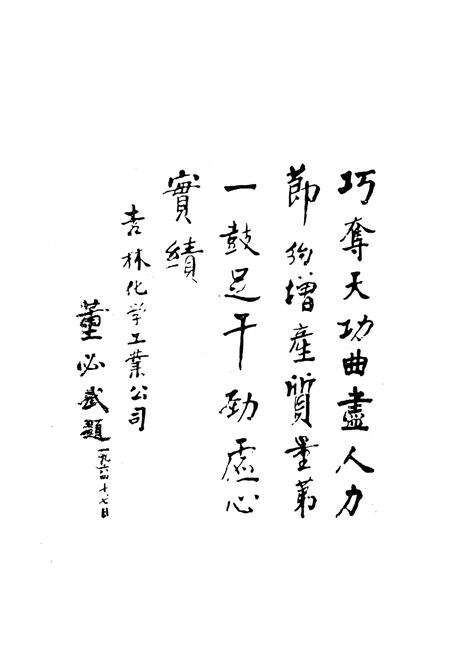 巧奪天功曲盡人力
節約增產質量第
一鼓足干勁虛心
實績
吉林化学工業公司
董必武題
一九六四十七日